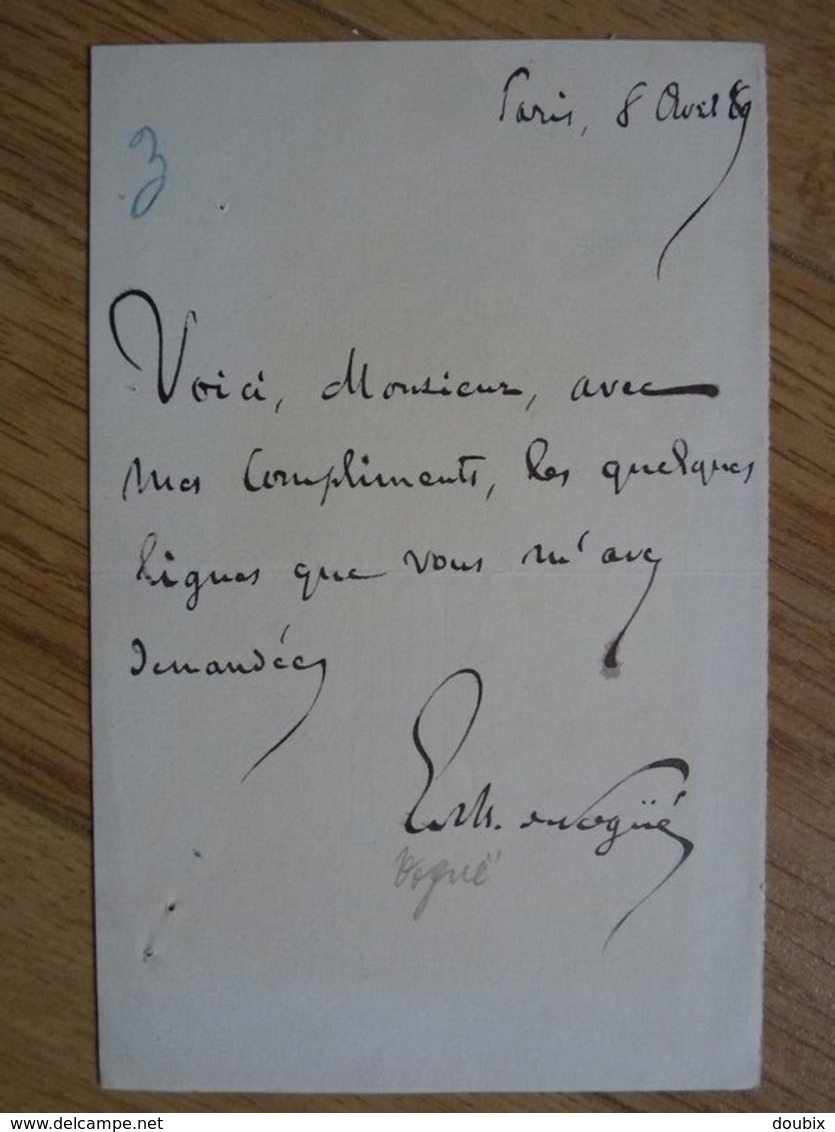 Paris, 8 Avril 89
3
Voici, Monsieur, avec
mes compliments, les quelques
lignes que vous m'avez
demandées
E. M. de Vogüé
Vogüé
www.delcampe.net
doubix